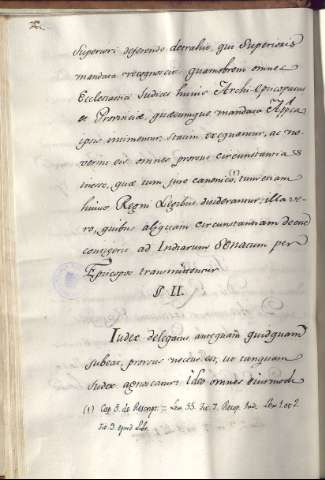 Superiori deferendo detrahit, qui Superioris
mandata recognoscit quamobrem omnes
Ecclesiastici Judices huius Archi-Episcopatus
et Provinciæ quæcumque mandata App.ca
ipsis intimentur, statim exequantur, ac no
verint eis omnes prorsus circumstantias
inesse, quæ tum jure canonico, (1) tum etiam
huius Regni Legibus desiderantur; illa ve
ro, quibus aliquam circumstantiam deesse
contigerit ad Indiarum Senatum per
Episcopos transmittentur
§. II.
Iudex delegatus antequam quidquam
subeat, prorsus necesse est, ut tanquam
Judex agnoscatur. Ideo omnes eiusmodi
(1) Cap. 3. de Rescript. = Lex 55. Tit. 7. Recop. Ind. Lex 1. et 2.
Tit. 9. eiusd. Lib.